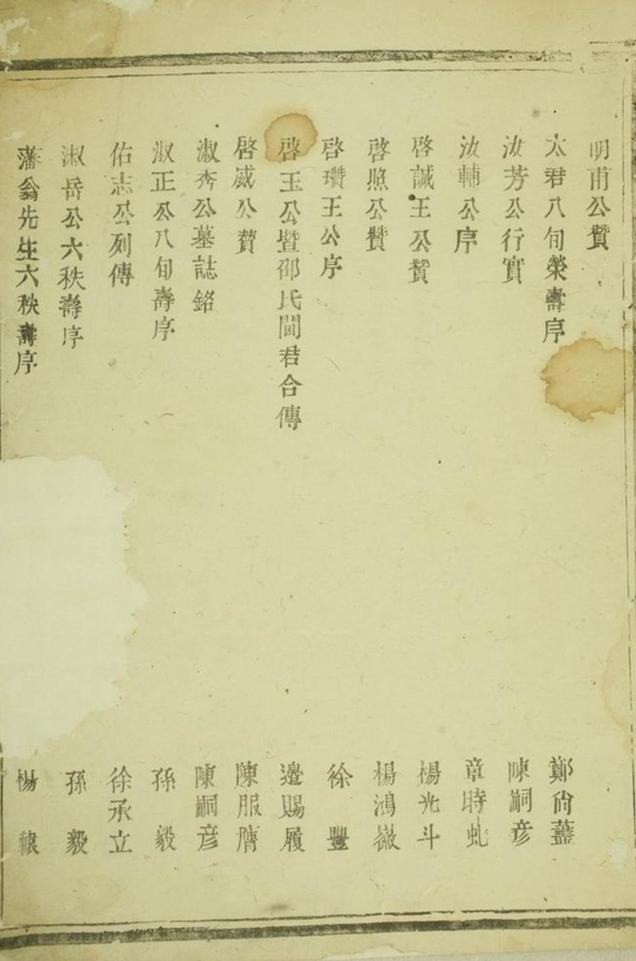 明甫公贊
太君八旬榮壽序 鄭尙
汝芳公行實 陳嗣彥
汝輔公序 章時虬
啓誠王公贊 楊光斗
啓照公贊 楊鴻
啓瓚王公序 徐豐
啓玉公暨邵氏閫君合傳 邊賜履
啓威公贊 陳服膺
淑秀公墓誌銘 陳嗣彥
淑正公八旬壽序 孫毅
佑志公列傳 徐承立
淑岳公六秩壽序 孫毅
藩翁先生六秩壽序 楊